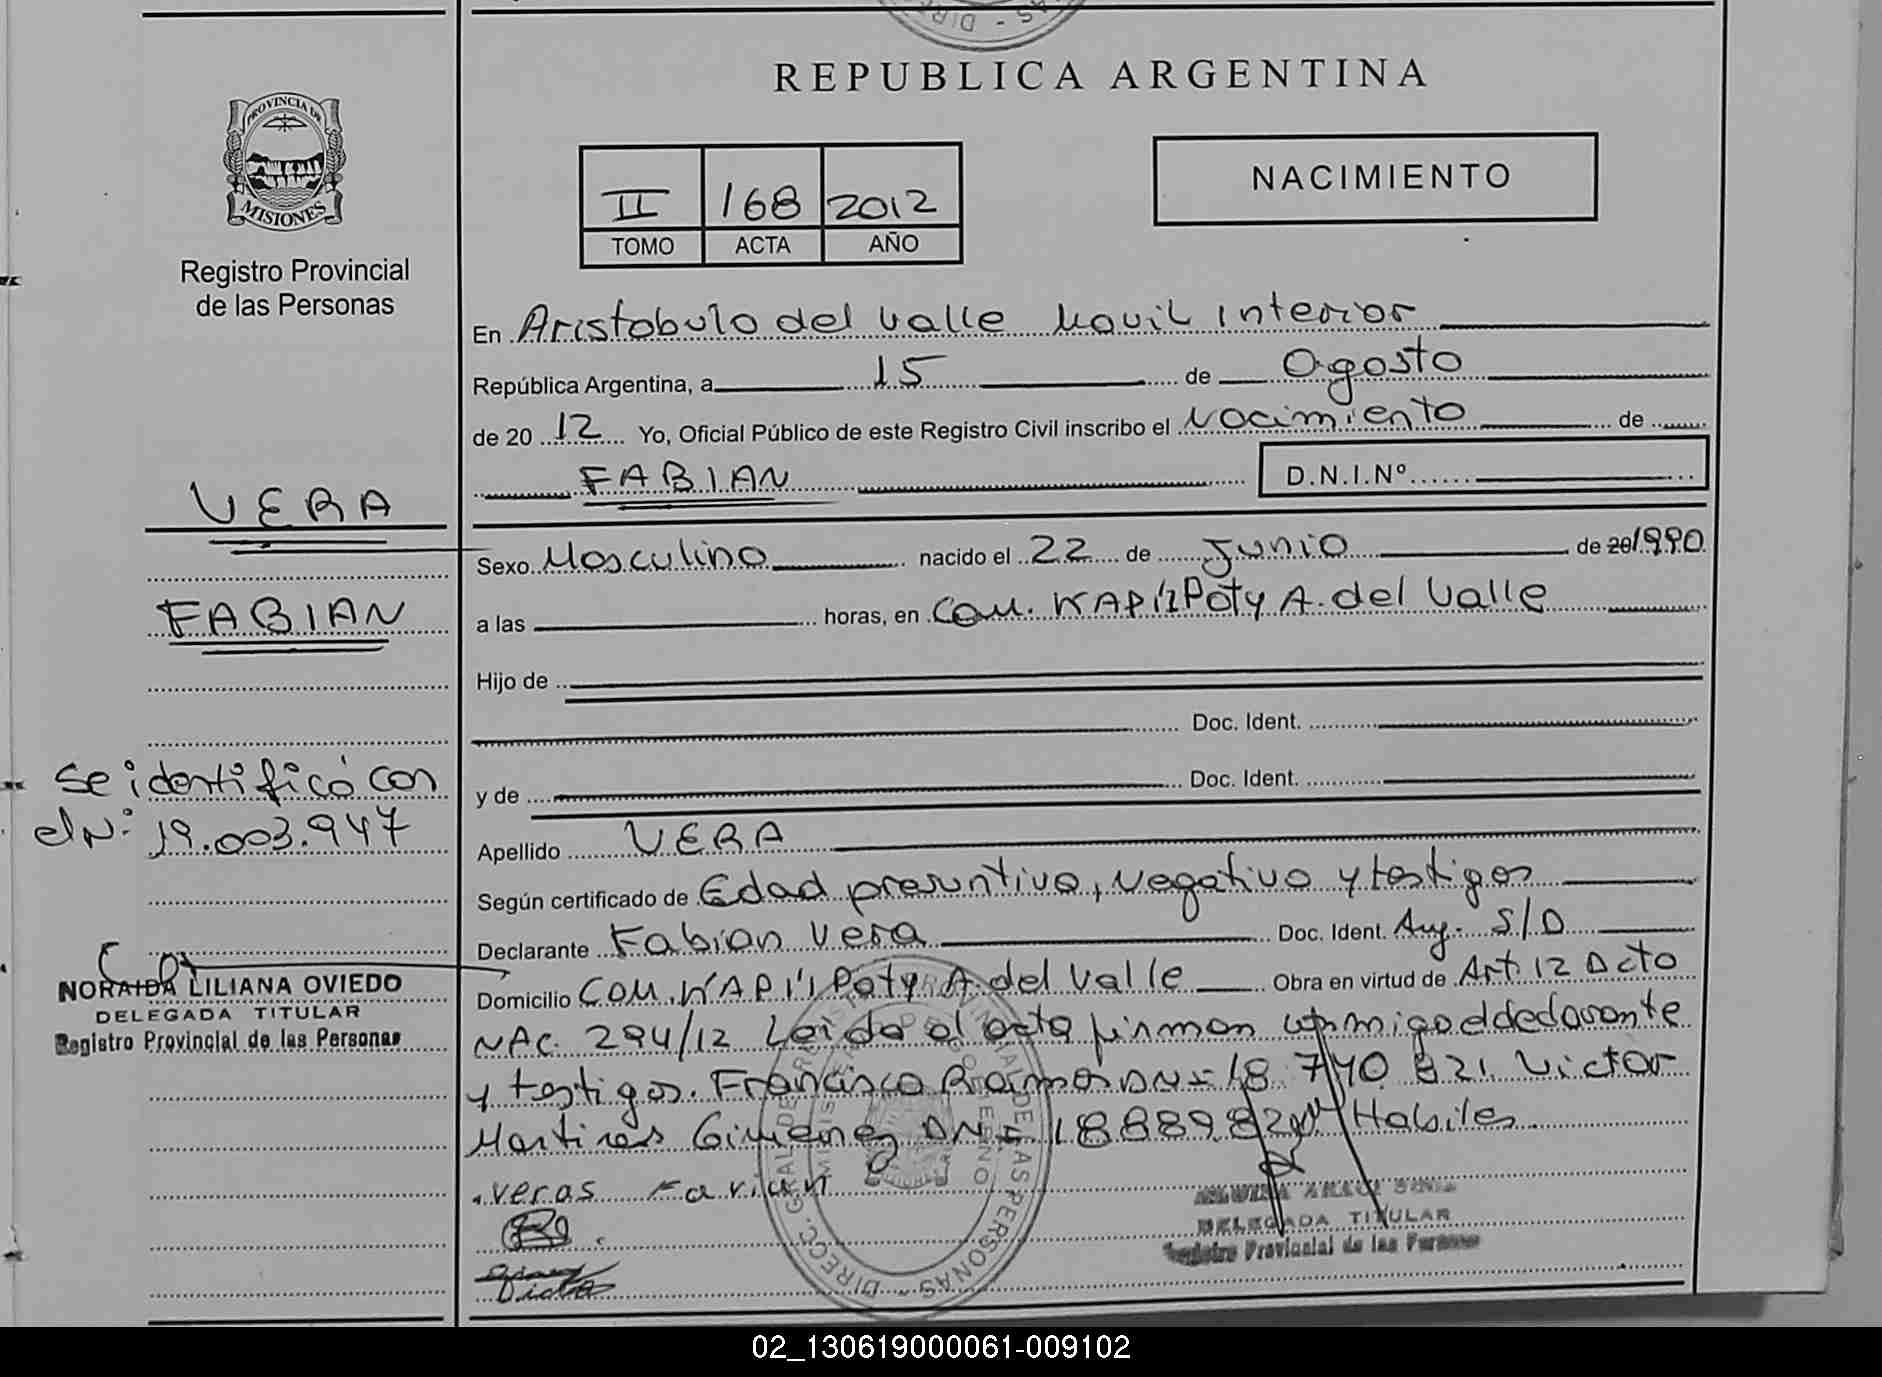 REPUBLICA ARGENTINA
PROVINCIA DE
MISIONES
Registro Provincial
de las Personas
II 168 2012
TOMO ACTA AÑO
NACIMIENTO
En Aristobulo del Valle Movil Interior
República Argentina, a 15 de Agosto
de 20 12 Yo, Oficial Público de este Registro Civil inscribo el Nacimiento de
FABIAN D.N.I.Nº
VERA
FABIAN
Se identificó con
el Nº 19.003.947
NORAIDA LILIANA OVIEDO
DELEGADA TITULAR
Registro Provincial de las Personas
Sexo Masculino nacido el 22 de Junio de 20 1990
a las horas, en Com. KAPI'I Poty A. del Valle
Hijo de
Doc. Ident.
y de Doc. Ident.
Apellido VERA
Según certificado de Edad presuntiva, negativo y testigos
Declarante Fabian Vera Doc. Ident. Arg. S/D
Domicilio Com. KAPI'I Poty A. del Valle Obra en virtud de Art. 12 Dcto
NAC. 294/12 Leida el acta firman conmigo el declarante
y testigos. Francisco Ramos DNI 18 740 821 Victor
Martines Gimenez DNI 18889820 Habiles
veras Favian
DELEGADA TITULAR
Registro Provincial de las Personas
02_130619000061-009102